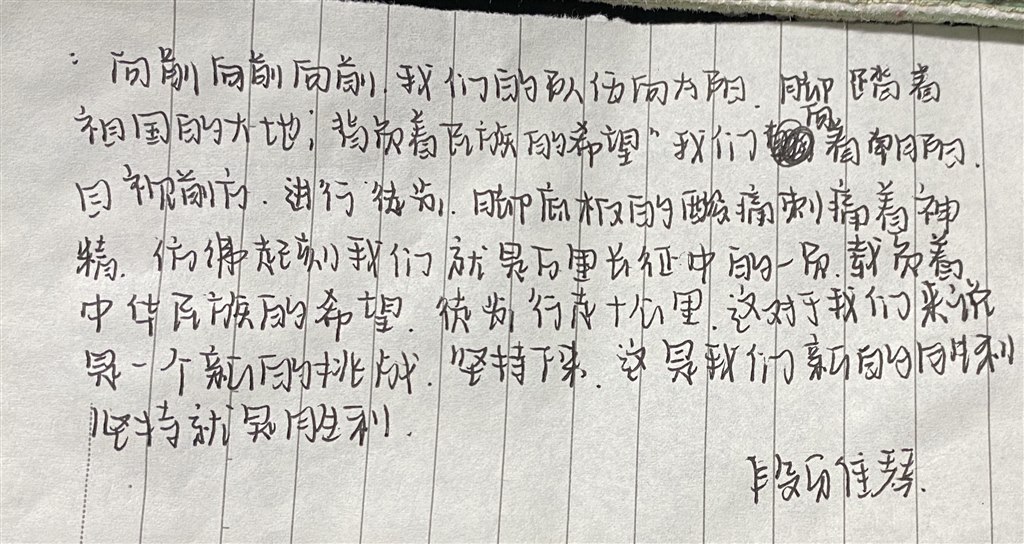 “向前向前向前.我们的队伍向太阳.脚踏着
祖国的大地;背负着民族的希望”我们向着朝阳.
目视前方.进行徒步.脚底板的酸痛刺痛着神
精.仿佛起刻我们就是万里长征中的一员.载负着
中华民族的希望.徒步行走十公里.这对于我们来说
是一个新的挑战.坚持下来.这是我们新的胜利
坚持就是胜利.
段历佳琴.